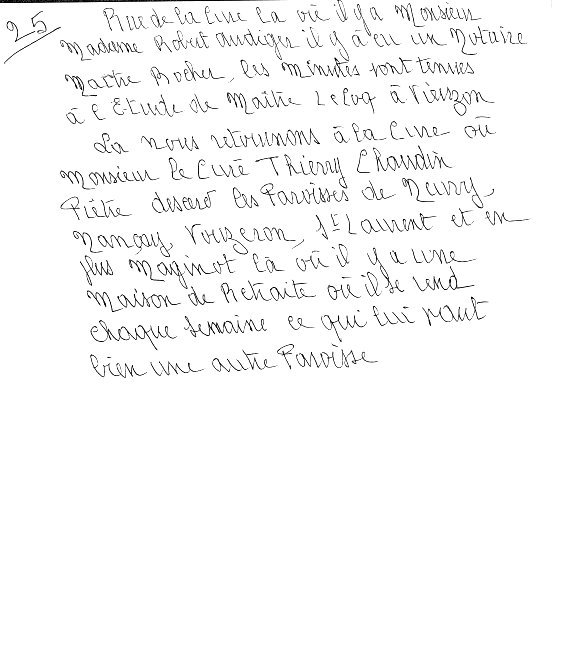 25
Rue de la Cure là où il y a Monsieur
Madame Robert Audiger il y à eu un Notaire
Maître Rocher, les minutes sont tenues
à l'Etude de Maître Lecoq à Vierzon
Là nous retournons à la Cure où
Monsieur le Curé Thierry Chaudin
Prêtre dessert les Paroisses de Neuvy,
Nançay, Vouzeron, St Laurent et en
plus Maginot là où il y a une
Maison de Retraite où il se rend
chaque semaine ce qui lui vaut
bien une autre Paroisse